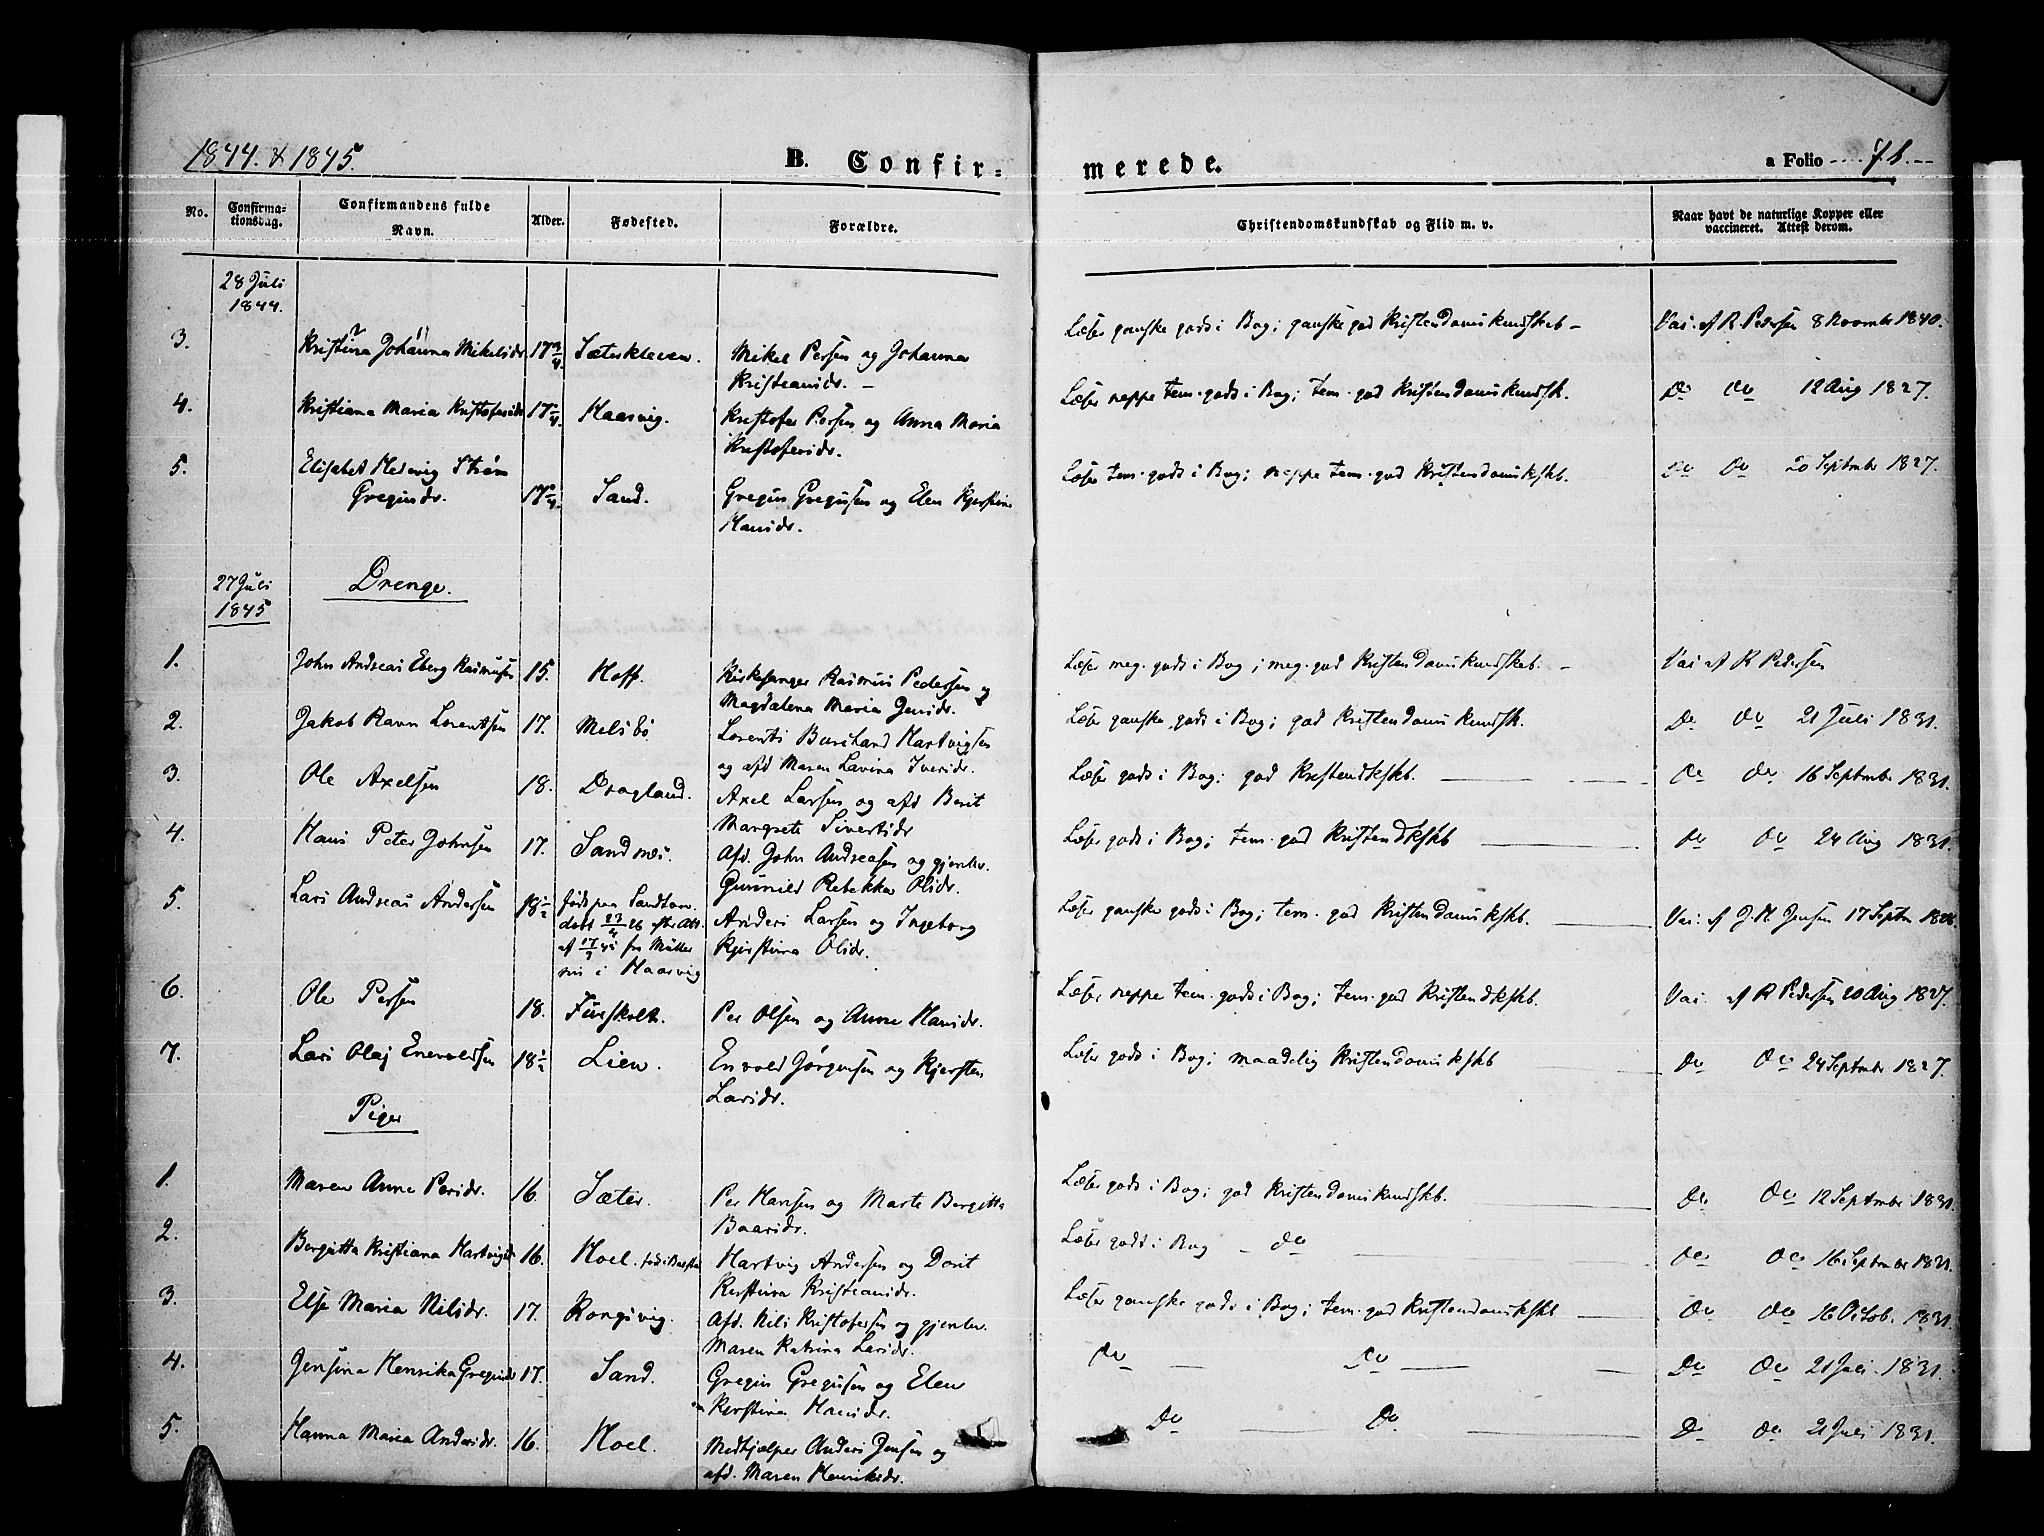 1844. & 1845.
B. Confir-
merede.
a Folio 71.
No.
Confirma-
tionsdag.
Confirmandens fulde
Navn.
Alder.
Fødested.
Forældre.
Christendomskundskab og Flid m. v.
Naar havt de naturlige Kopper eller
vaccineret. Attest derom.
28 Juli
1844.
3. Kristina Johanna Mikelsdr. 17 3/4. Sæterkleiven. Mikel Persen og Johanna
Kristiansdr. –
Læser ganske gods i Bog; ganske god Kristendomskundskab – Vac. af R. Pedersen 8 November 1840.
4. Kristiana Maria Kristofersdr Haarvig. Kristofer Persen og Anna Maria
Kristofersdr.
Læser neppe tem. gods i Bog; tem. god Kristendomskundsk. Do do 12 Aug 1827.
5. Elisabet Hedvig Strøm
Gregusdr. Sand. Gregus Gregusen og Elen Kjerstina
Hansdr.
Læser tem. gods i Bog; neppe tem. god Kristendomskskb. Do do 20 September 1827.
27 Juli
1845
Drenge.
1. John Andreas Eberg Rasmusen 15. Hoff. Kirkesanger Rasmus Pedersen og
Magdalena Maria Jensdr.
Læser meg. gods i Bog; meg. god Kristendomskundskab. – Vac. af R Pedersen
2. Jakob Ravn Lorentsen 17. Melsbø Lorents Burchard Hartvigsen
og afd Maren Lavina Iversdr.
Læser ganske gods i Bog; god Kristendomskundsk. Do do 21 Juli 1831.
3. Ole Axelsen 18. Dragland. Axel Larsen og afd Berit
Margrete Sivertsdr
Læser gods i Bog; god Kristendkskb. Do do 16 September 1831.
4. Hans Peter Johnsen 17. Sandnes. Afd. John Andreasen og gjenlev.
Gunnild Rebekka Olsdr.
Læser gods i Bog; tem. god Kristendkskb do do 24 Aug 1831.
5. Lars Andreas Andersen 18 1/2 født paa Sandtorv
døbt 23/4 26 efter Att.
af 17/7 45 fra
i Haarvig
Anders Larsen og Ingeborg
Kjerstina Olsdr.
Læser ganske gods i Bog; tem. god Kristendomskskb. Vac. af J. H. Jensen 17 Septbr
6. Ole Persen 18. Furskolt. Per Olsen og Anne Hansdr.
Læser neppe tem. gods i Bog; tem. god Kristendkskb. Vac. af R Pedersen 20 Aug 1827.
7. Lars Olaj Enevoldsen 18 1/2 Lien. Envold Jørgensen og Kjersten
Larsdr.
Læser gods i Bog; maadelig Kristendomskskb do do 24 September 1827.
Piger
1. Maren Anna Persdr. 16. Sæter. Per Hansen og Marte Bergitta
Baarsdr.
Læser gods i Bog; god Kristendomskundskb. Do do 12 September 1831
2. Bergitta Kristiana Hartvigsd 16. Hoel. Hartvig Andersen og Dorit
Kerstina Kristiansdr.
Læser gods i Bog – do do do 16 September 1831.
3. Else Maria Nilsdr. 17. Kongsvig. Afd. Nils Kristofersen og gjenlev.
Maren Katrina Larsdr.
Læser ganske gods i Bog; tem. god Kristendomskskb do do 16 Octob. 1831.
4. Jensina Henrika Gregusdr 17. Sand. Gregus Gregusen og Elen
Kerstina Hansdr.
do — do — Do do 21 Juli 1831.
5. Hanna Maria Andersdr. 16. Hoel. Medhjælper Anders Jensen og
afd. Maren Henriksdr.
Do — Do. — Do do 21 Juli 1831.